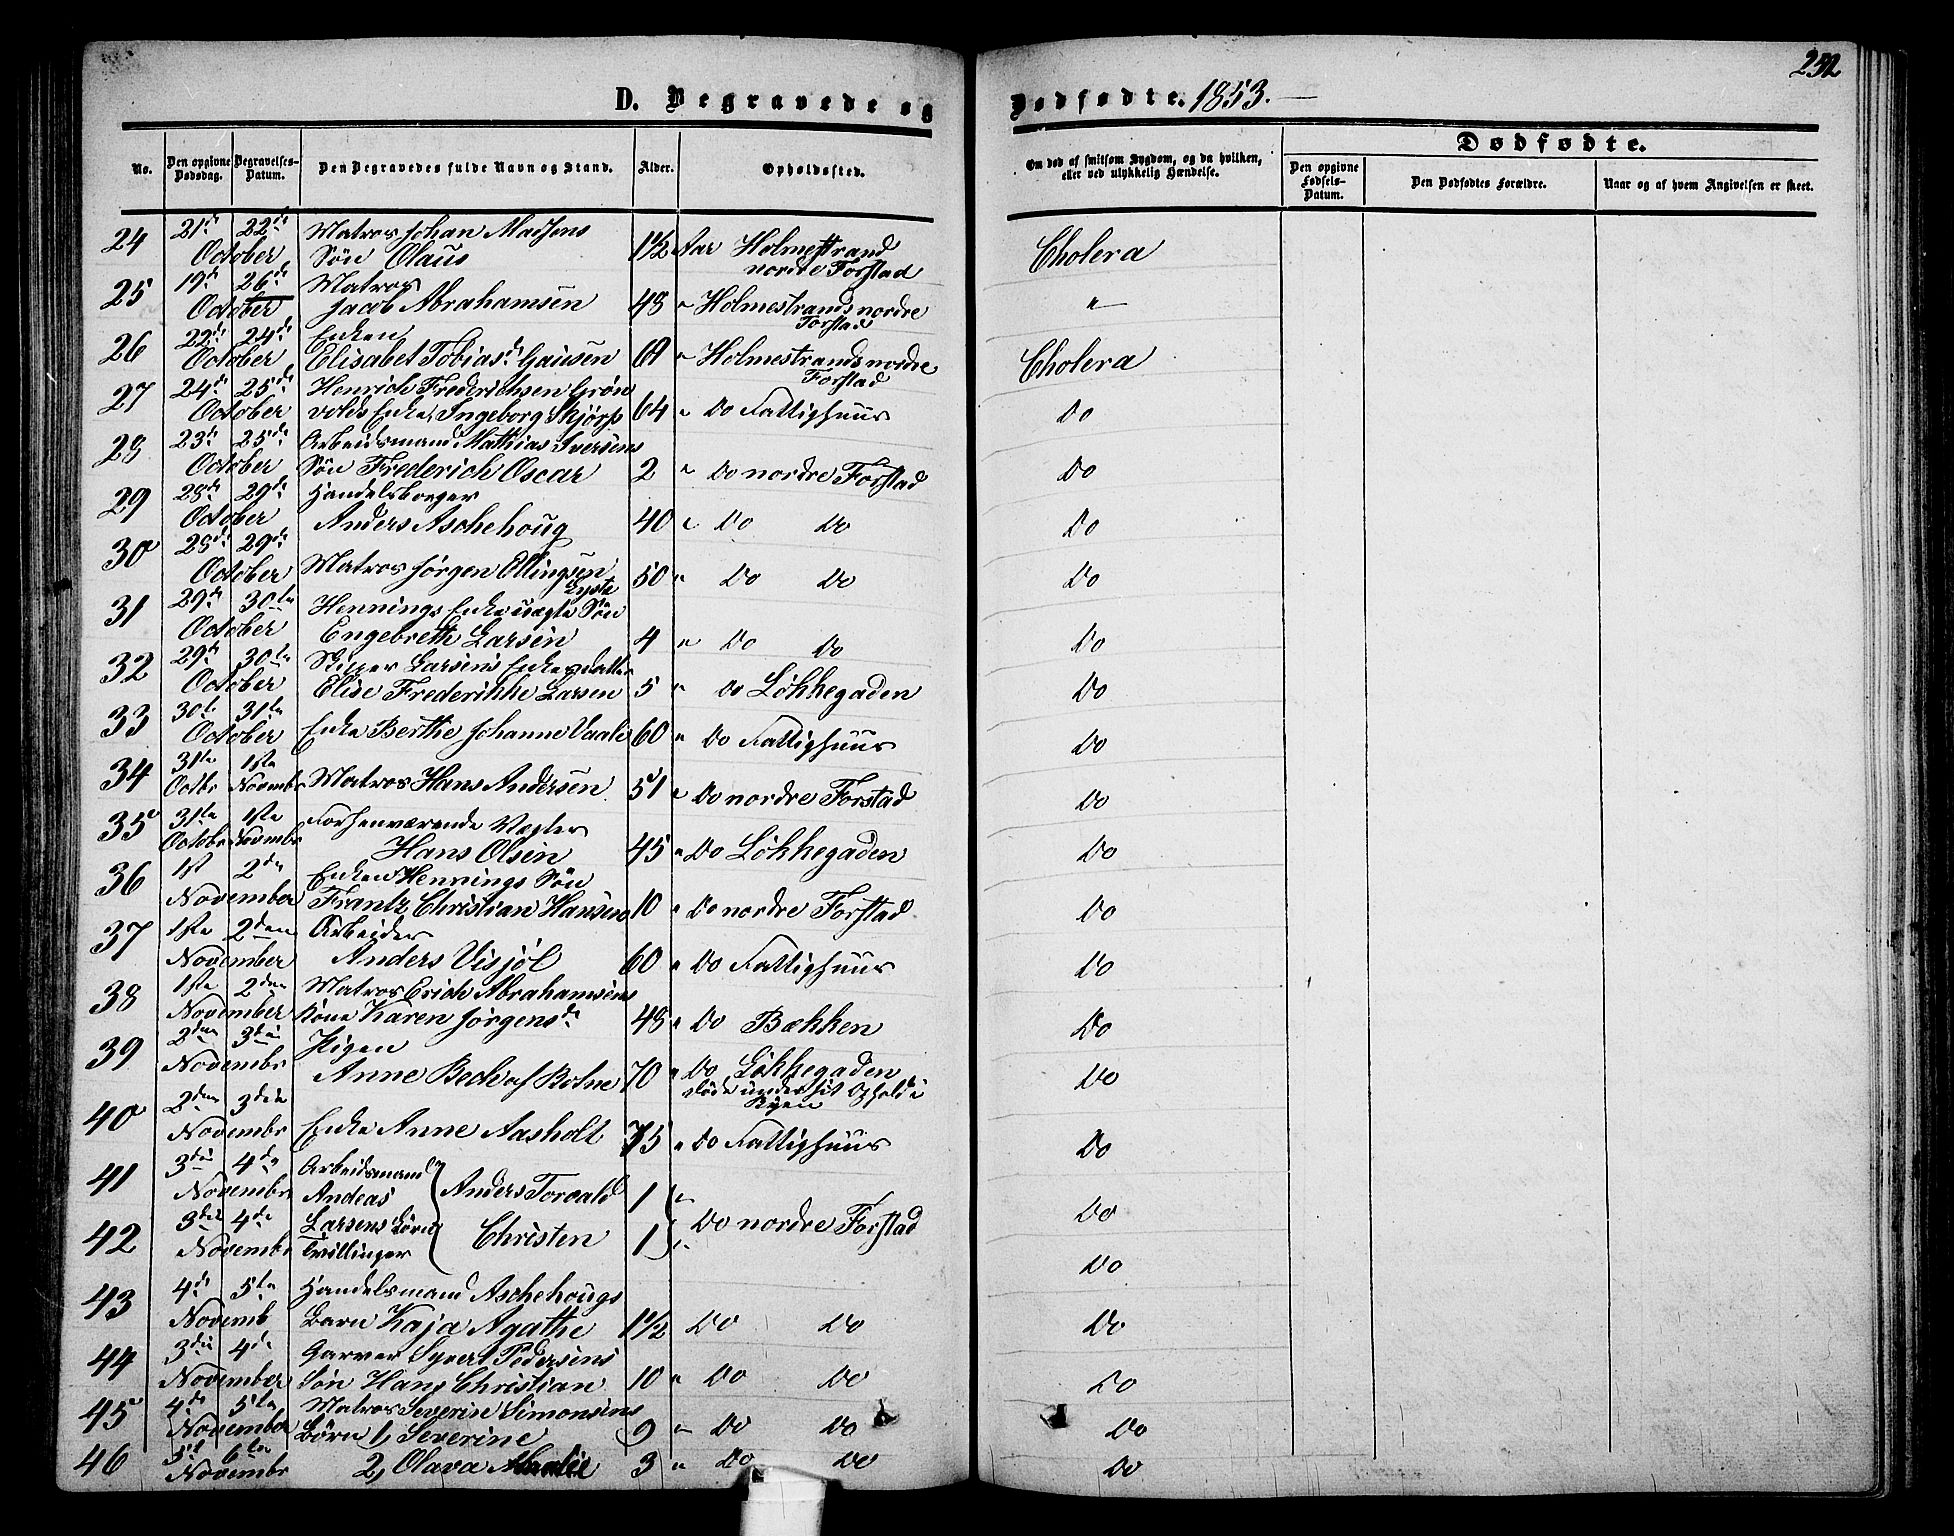 252
D. Begravede og Dødfødte. 1853.
No.
Den opgivne Dødsdag.
Begravelses-Datum.
Den Begravedes fulde Navn og Stand.
Alder.
Opholdssted.
Om død af smitsom Sygdom, og da hvilken,
eller ved ulykkelig Hændelse.
Dødfødte.
Den opgivne Fødsels-Datum.
Den Dødfødtes Forældre.
Naar og af hvem Angivelsen er skeet.
24 21de 22de Matros Johan Madsens
October Søn Olaus 1½ Aar Holmestrand Cholera
nordre Forstad
25 19de 26de Matros
October Jacob Abrahamsen 48 " Holmestrands nordre "
Forstad
26 22de 24de Enken
October Elisabet Tobiasd. Gausen 69 " Holmestrands nordre Cholera
Forstad
27 24de 25de Henrich Frederichsen Grøn
October volds Enke, Ingeborg 64 " Do Fattighuus Do
28 23de 25de Arbeidsmand Mathias Iversens
October Søn Frederich Oscar 2 " Do nordre Forstad Do
29 28de 29de Handelsborger
October Anders Aschehoug 40 " Do Do Do
30 28de 29de
October Matros Jørgen Ellingsen 50 " Do Do Do
31 29de 30te Hennings Enke uægte Søn
October Engebreth Larsen 4 " Do Do Do
32 29de 30te Skipper Larsens Enkes datter
October Elise Frederikke Larsen 5 " Do Løkkegaden Do
33 30te 31te
October Enke Berthe Johanne Vaale 60 " Do Fattighuus Do
34 31te 1ste
Octbr Novembr Matros Hans Andersen 51 " Do nordre Forstad Do
35 31te 1ste Forhenværende Vægter
Octobr Novembr Hans Olsen 45 " Do Løkkegaden Do
36 1st 2den Enken Hennings Søn
November Frantz Christian Hansen 10 " Do nordre Forstad Do
37 1ste 2den Arbeider
November Anders Visjøl 60 " Do Fattighuus Do
38 1ste 2den Matros Erich Abrahamsens
November Kone Karen Jørgensd. 48 " Do Bækken Do
39 2den 3die Pigen
Novembr Anne Bech af Botne 70 " Do Løkkegaden Do
døde under sit Ophold i
Byen
40 2den 3die
Novembr Enke Anne Aasholt 75 " Do Fattighuus Do
41 3die 4de Arbeidsmand
Novembr Andeas Anders Torvald 1 " Do
42 3die 4de Larsens Børn Do nordre Forstad
Novembr Tvillinger Christen 1 " Do
43 4de 5te Handelsmand Aschehougs
Novemb Barn Kaja Agathe 1½ Do Do Do
44 3die 4de Garver Syvert Pedersens
November Søn Hans Christian 10 " Do Do Do
45 4de 5te Matros Severin Simonsens
November Børn 1, Severine 9 " Do Do Do
46 5t 6te
Novembr 2, Olava 3 " Do Do Do